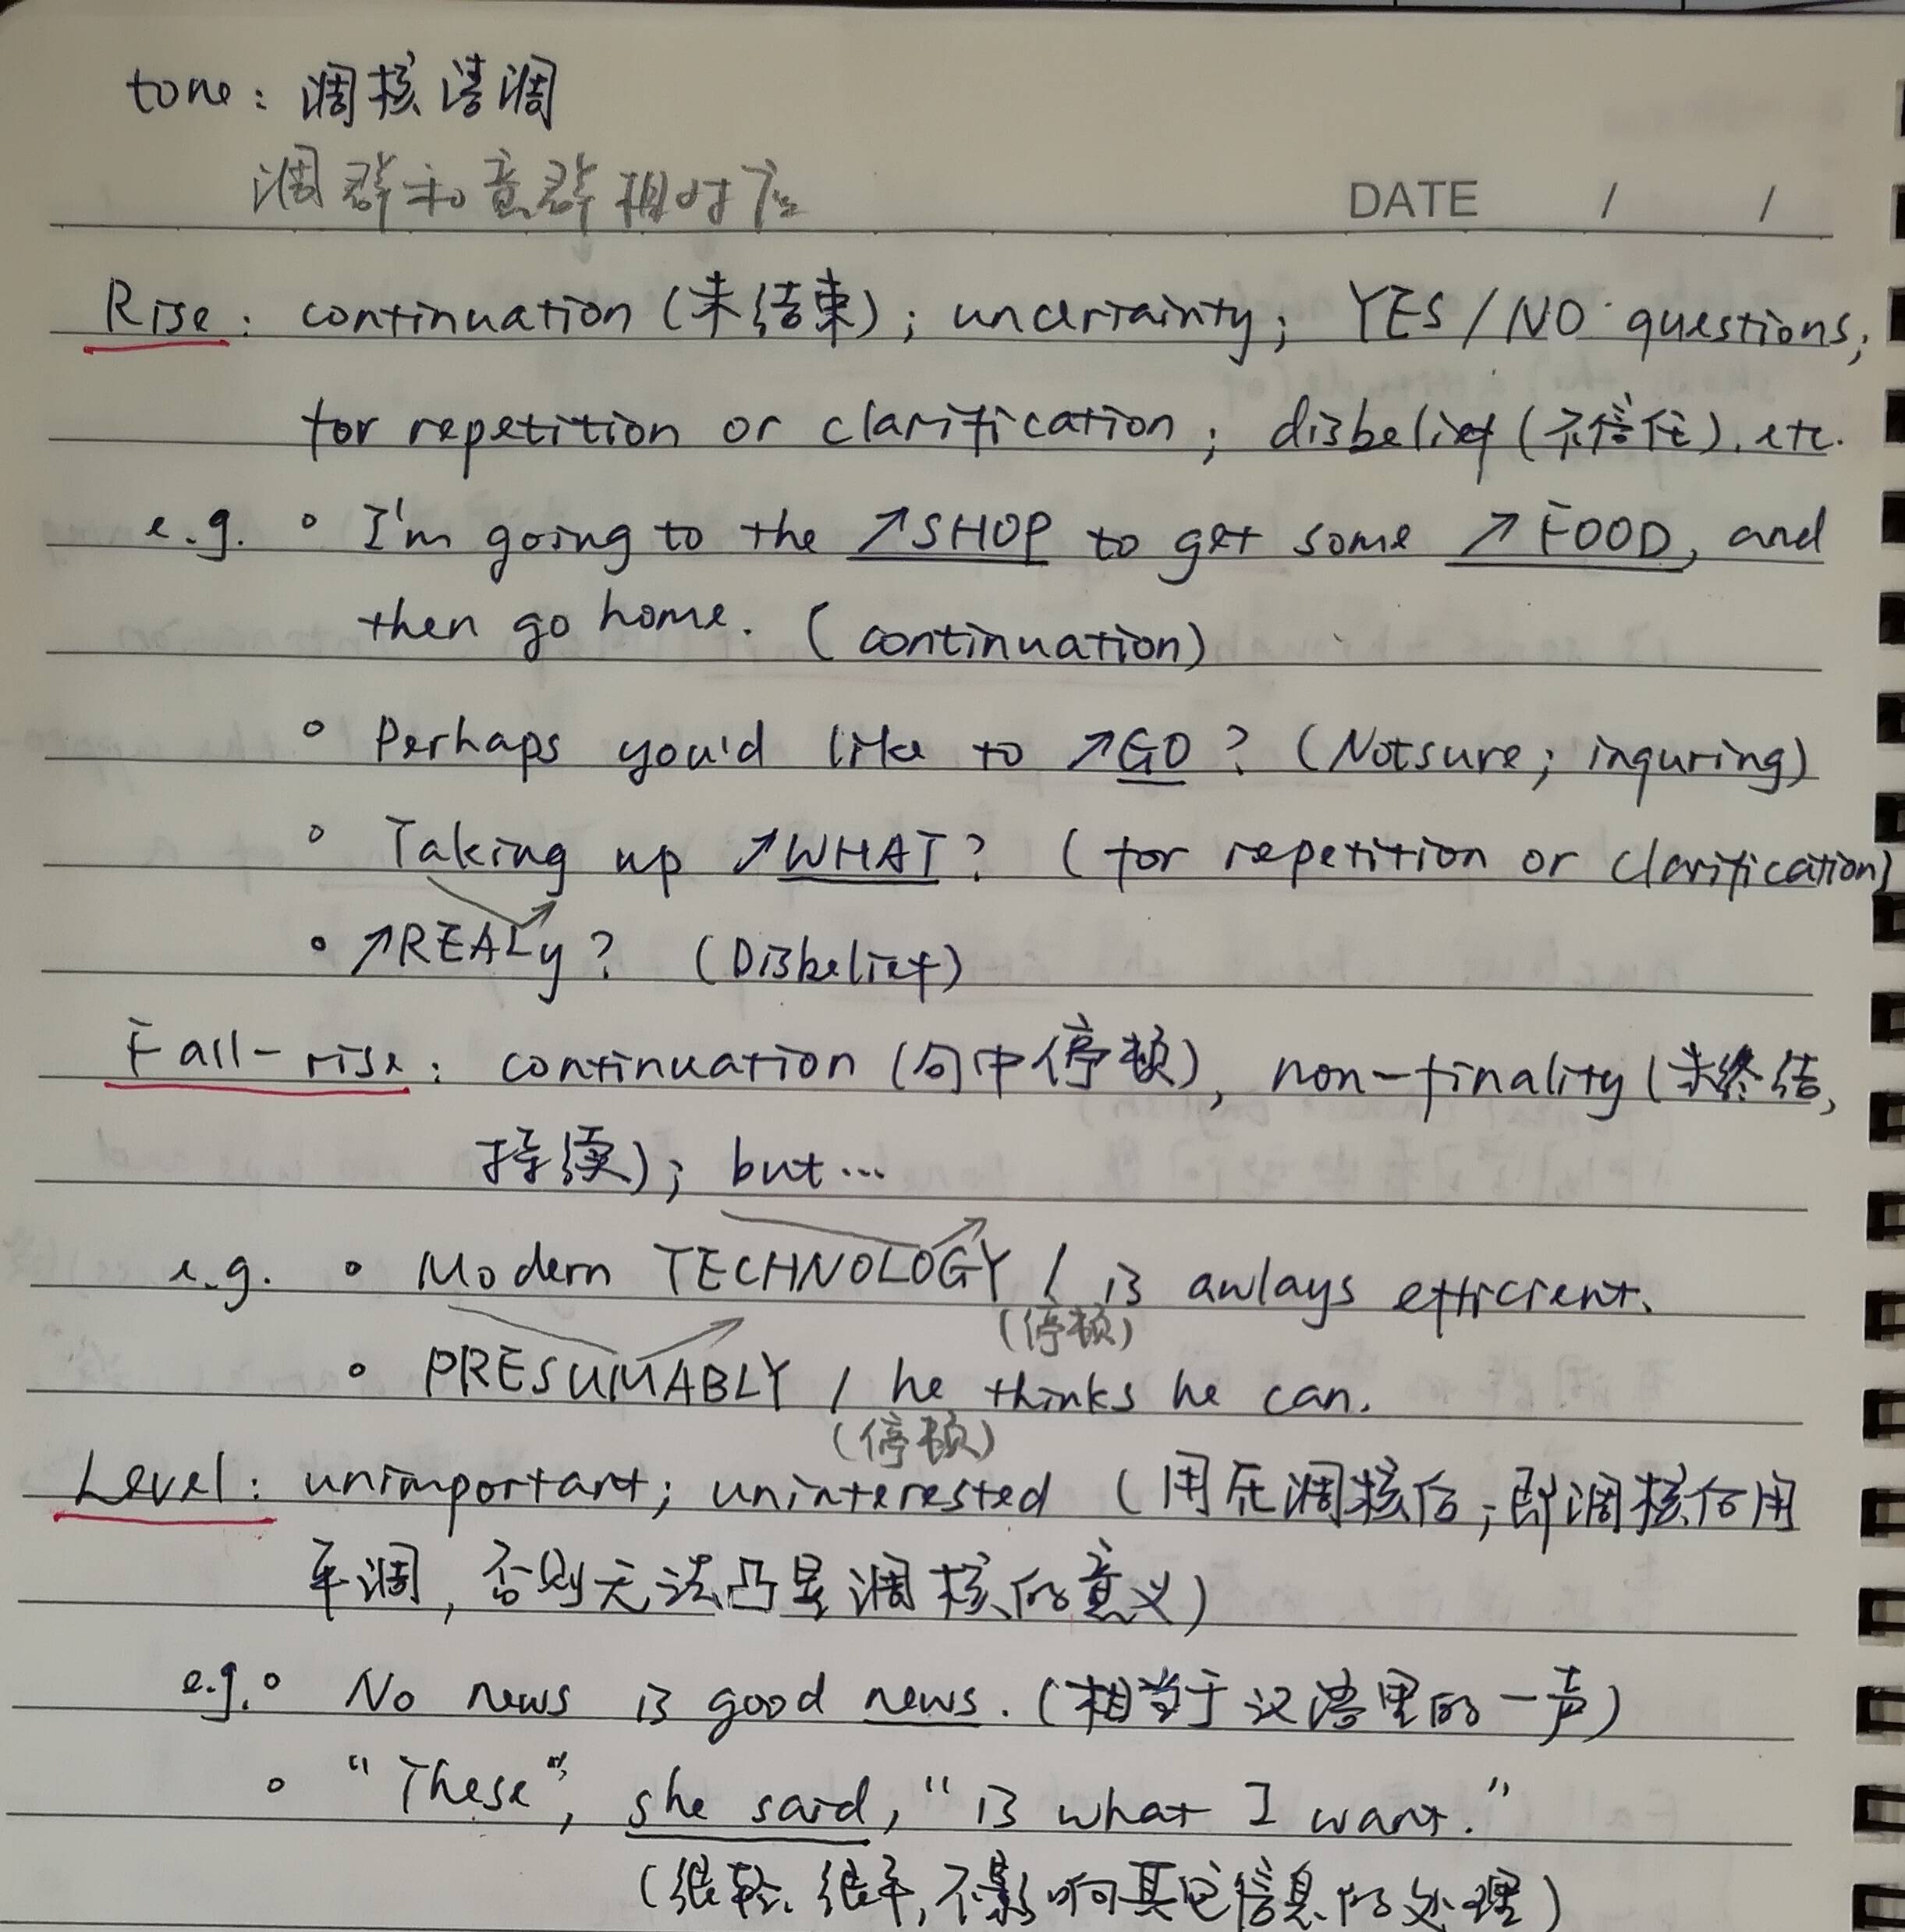 tone: 调核语调
调群和意群相对应
DATE / /
Rise: continuation (未结束); uncertainty; YES/NO questions;
for repetition or clarification; disbelief (不信任), etc.
e.g. ° I'm going to the ↗SHOP to get some ↗FOOD, and
then go home. (continuation)
° Perhaps you'd like to ↗GO? (Notsure; inquring)
° Taking up ↗WHAT? (for repetition or clarification)
• ↗REALy? (Disbelief)
Fall-rise: continuation (句中停顿), non-finality (未终结,
持续); but...
e.g. ° Modern TECHNOLOGY / is awlays efficient.
(停顿)
° PRESUMABLY / he thinks he can.
(停顿)
Level: unimportant; uninterested (用在调核后; 即调核后用
平调, 否则无法凸显调核的意义)
e.g. ° No news is good news. (相当于汉语里的一声)
° "These", she said, "is what I want."
(很轻、很平, 不影响其它信息的处理)